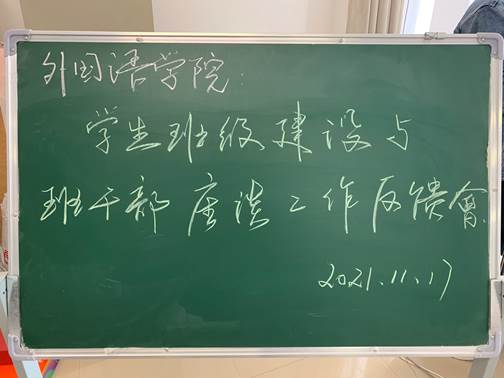 外国语学院:
学生班级建设与
班干部座谈工作反馈會
2021.11.17